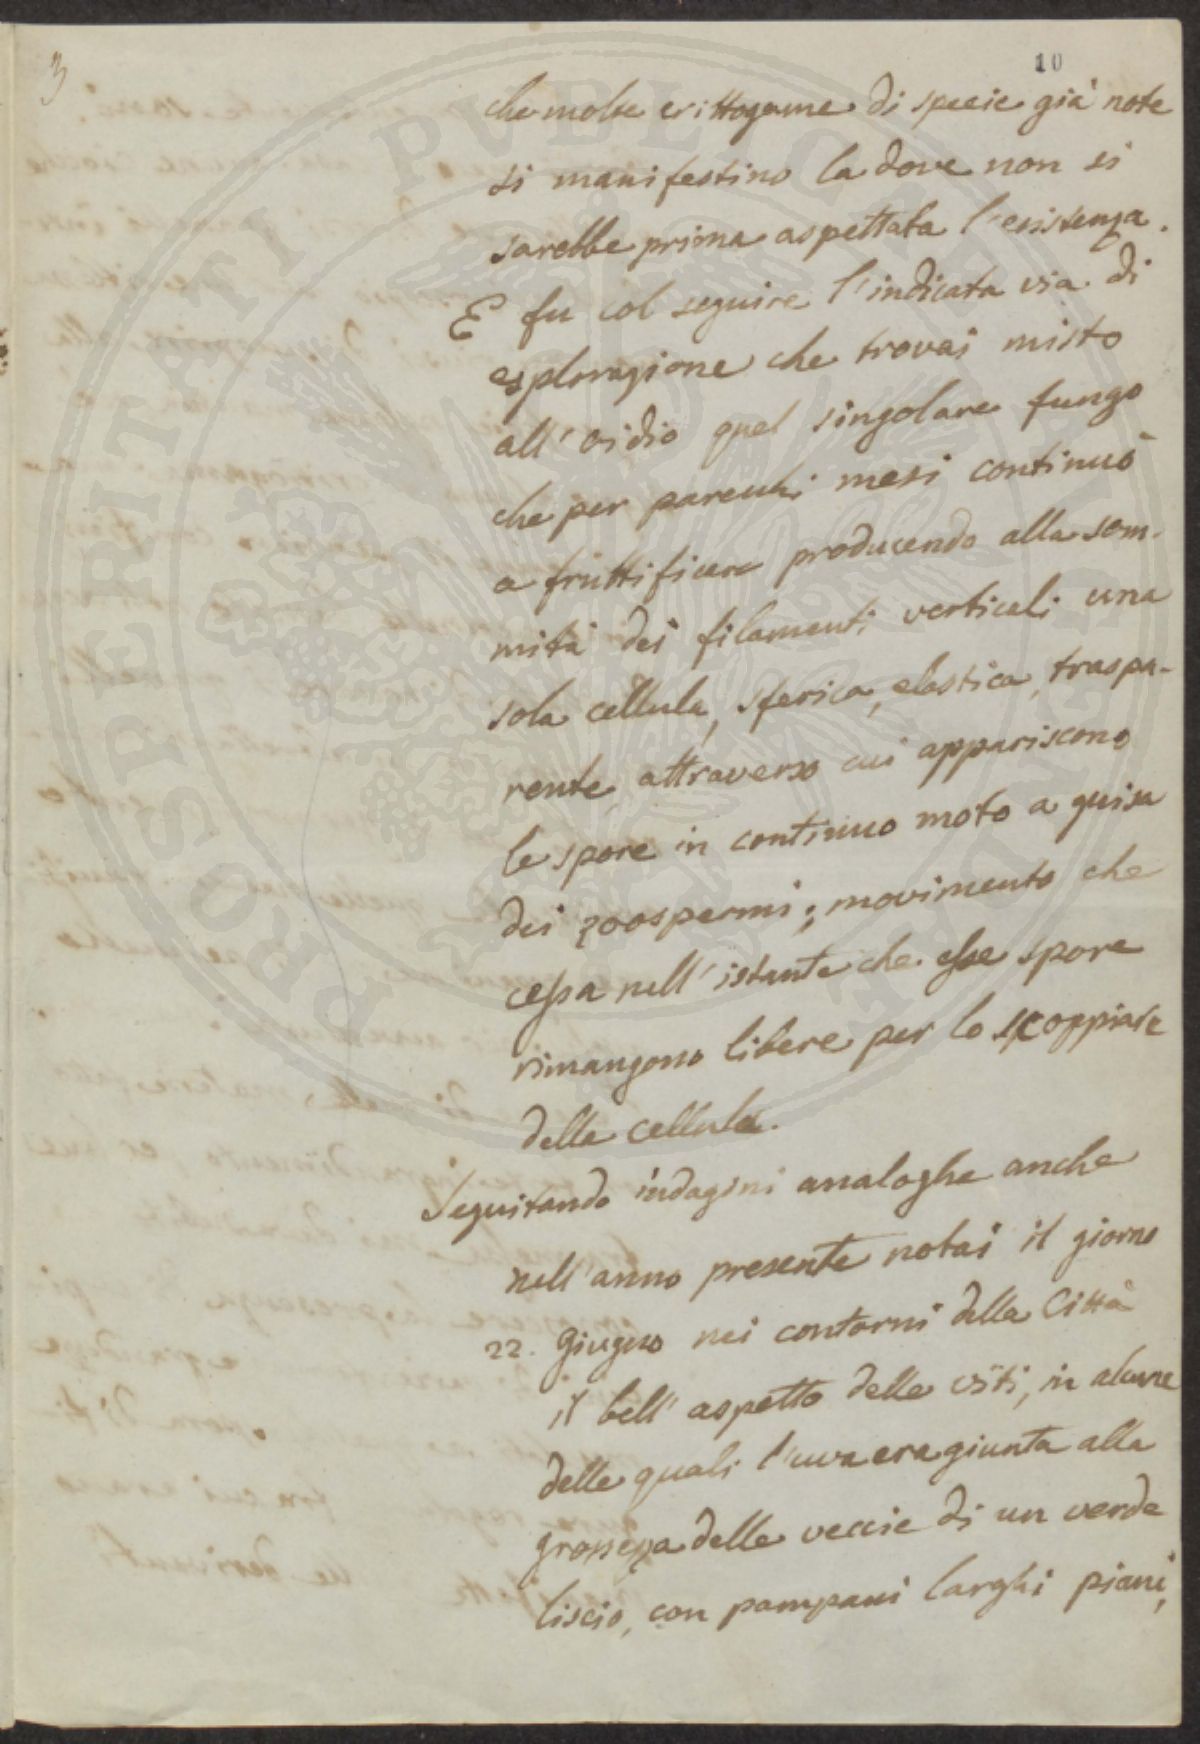 3
10
che molte crittogame di specie già note
si manifestino la dove non si
sarebbe prima aspettata l'esistenza.
E fu col seguire l'indicata via di
esplorazione che trovai misto
all'oidio quel singolare fungo
che per parecchi mesi continuò
a fruttificare producendo alla som-
mità dei filamenti verticali una
sola cellula, sferica, elastica, traspa-
rente, attraverso cui appariscono
le spore in continuo moto a guisa
dei zoospermi; movimento che
cessa nell'istante che esse spore
rimangono libere per lo scoppiare
della cellula.
Seguitando indagini analoghe anche
nell'anno presente notai il giorno
22. Giugno nei contorni della Città
il bell'aspetto delle viti, in alcune
delle quali l'uva era giunta alla
grossezza delle veccie di un verde
liscio, con pampani larghi piani,
PROSPERITATI PUBLICAE